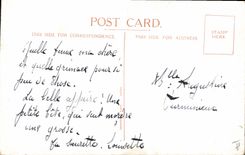 POST CARD.
THIS SIDE FOR CORRESPONDENCE
THIS SIDE FOR ADDRESS
STAMP
HERE
Quelle femme ma chère!
et quelle grimace pour si
peu de chose.
La belle affaire! Une
petite bête, qui veut mordre
une grosse.
Ta sœurette Louisette
Mlle Augustine